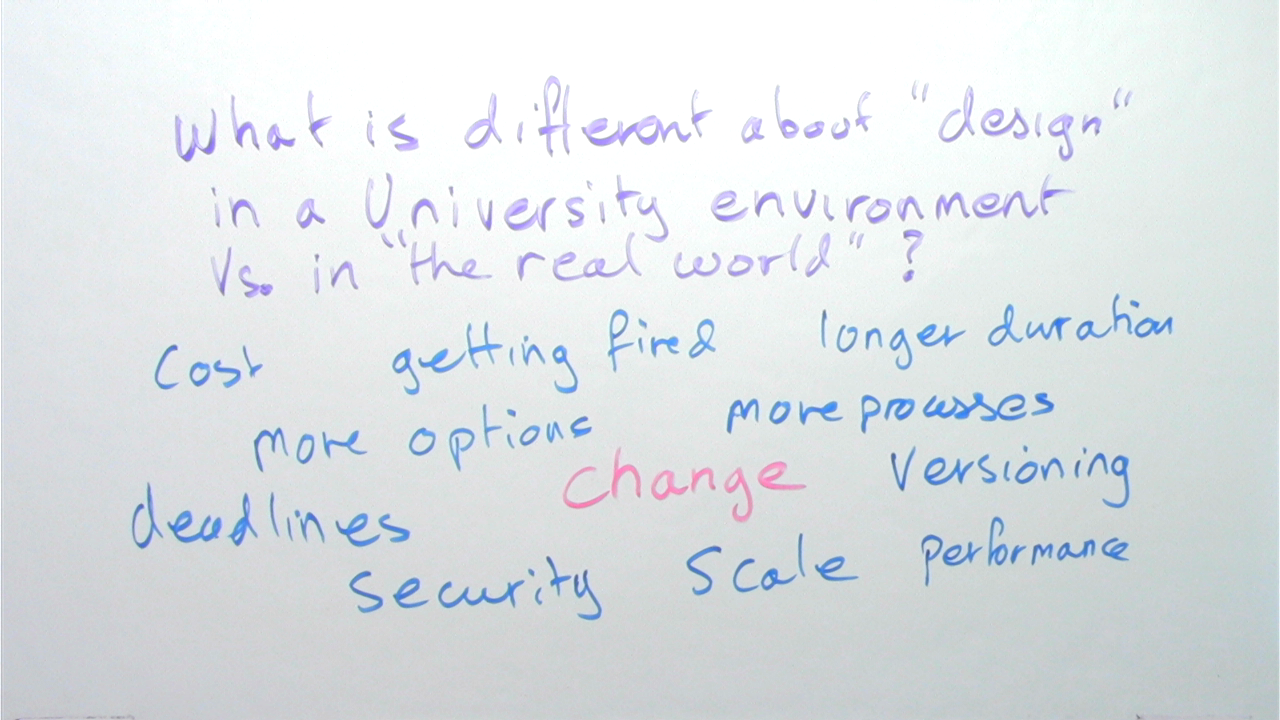 What is different about "design"
in a University environment
Vs. in "the real world" ?
Cost getting fired longer duration
more options more processes
deadlines change Versioning
security Scale performance